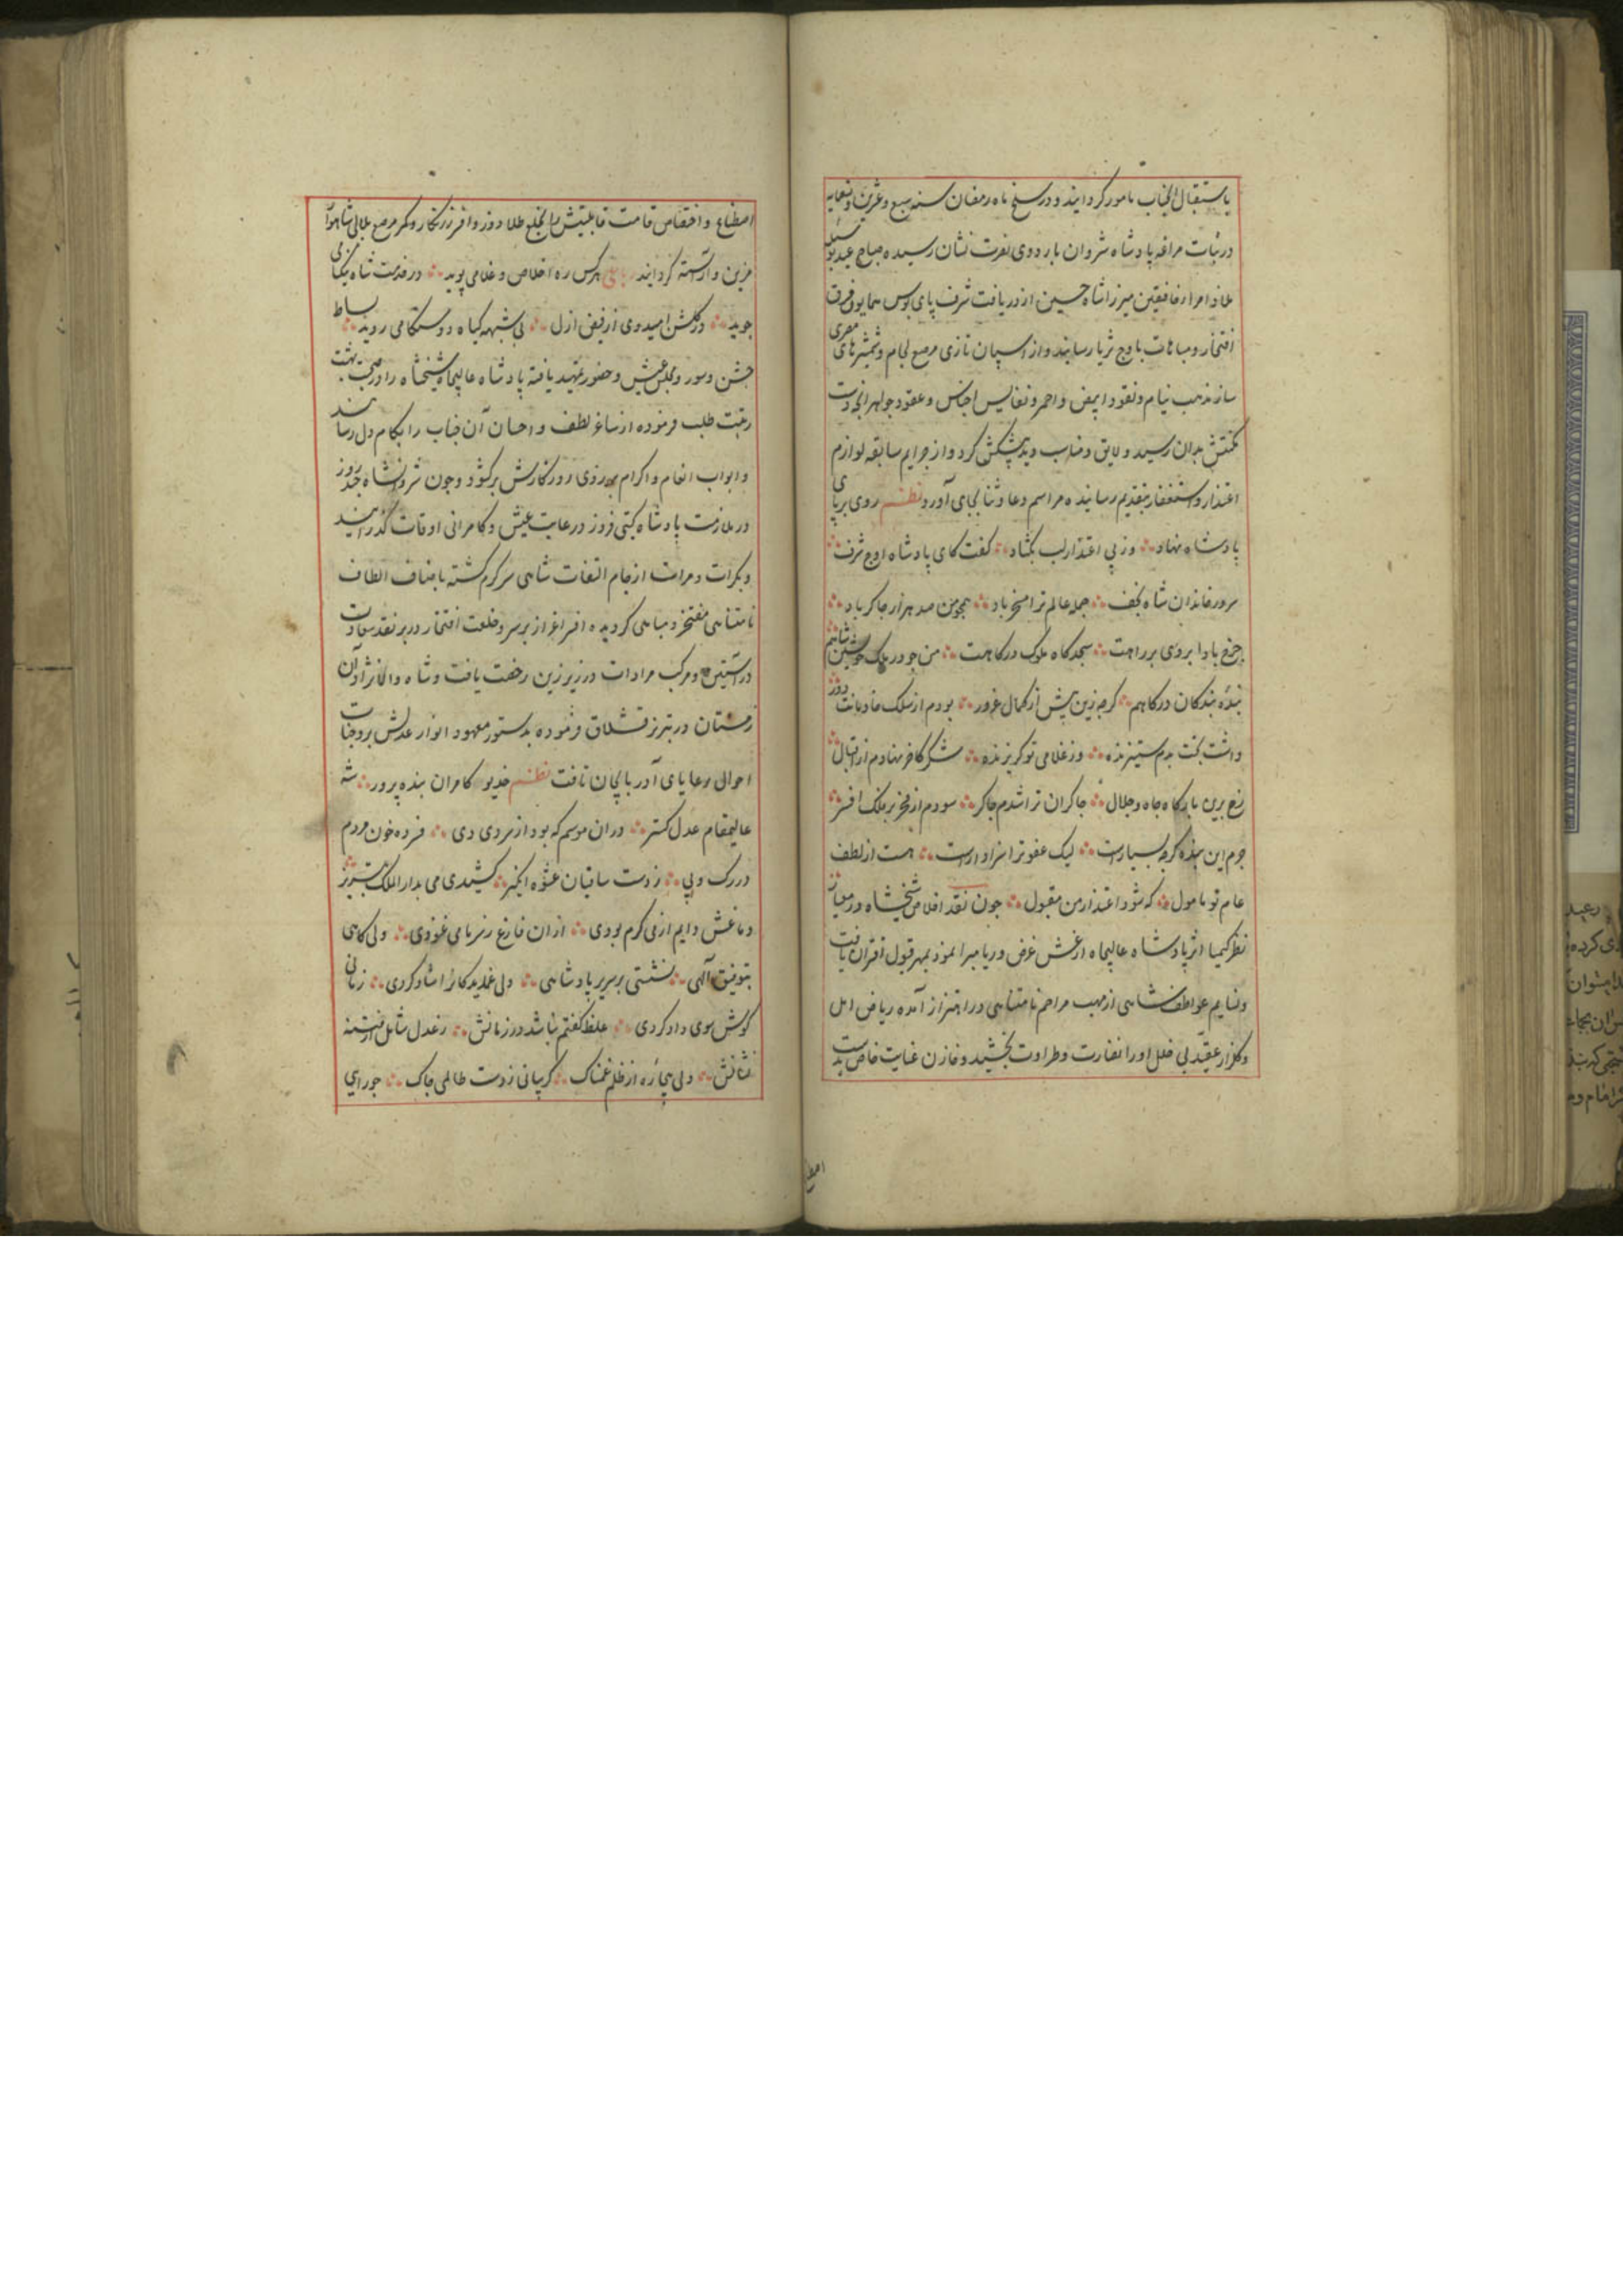 باستقبال آنجناب مامور گردانیدند و در سلخ ماه رمضان سنه سبع و عشرین و تسعمایه
در نبات مراغه پادشاه شروان باردوی نصرت نشان رسیده صباح عید بوسیله
ملاذ امرا رفاقتین میرزا شاه حسین از دریافت شرف پای بوس همایون فرق
افتخار و مباهات باوج ثریا رسانید و از اسپان تازی مرصع لجام و شمشیرهای مصری
ساز مذهب نیام و نقود ابیض و احمر و نفایس اجناس و عقود جواهر آنچه دست
مکنتش بدان رسید و لایق و مناسب دید پیشکش کرد و از جرایم سابقه لوازم
اعتذار و استغفار بتقدیم رسانیده مراسم دعا و ثنا بجای آورد نظم روی بر پای
پادشاه نهاد وز پی اعتذار لب بگشاد گفت کای پادشاه اوج شرف
سرور خاندان شاه نجف جمله عالم ترا مسخر باد همچو من صد هزار چاکر باد
چرخ بادا بروی بر راهت سجدگاه ملوک درگاهت من چو در ملک خویشتن شاهم
بنده بندگان درگاهم گرچه زین پیش از کمال غرور بودم از سلک خادمانت دور
داشت بخت بدم ستیزنده وز غلامی تو گریزنده شکر کاخر نهادم از اقبال
رخ برین بارگاه جاه و جلال چاکران ترا شدم چاکر سودم از فخر بر فلک افسر
جرم این بنده گرچه بسیارست لیک عفو ترا سزاوارست هست از لطف
عام تو مامول که شود اعتذار من مقبول چون نقد اخلاص شیخشاه در معیار
نظر کیمیا اثر پادشاه عالیجاه از غش غرض و ریا مبرا نمود بمهر قبول اقتران یافت
و نسایم عواطف شاهی از مهب مراحم نامتناهی در اهتزاز آمده ریاض امل
و گلزار عقیدت بی خلل او را نضارت و طراوت بخشید و خازن عنایت خاص بدست
اصطناع
اصطناع و اختصاص قامت قابلیتش را بخلع طلادوز و افسر زرنگار و کمر مرصع بلالی شاهوار
مزین و آراسته گردانید رباعی هرکس ره اخلاص و غلامی پوید در خدمت شاه نیکنامی
جوید در گلشن امیدوی از فیض ازل بی شبهه گیاه دوستکامی روید بساط
جشن و سور و مجلس عیش و حضور تمهید یافته پادشاه عالیجاه شیخشاه را در صحبت بهشت
رتبت طلب فرموده از ساغر لطف و احسان آن جناب را بکام دل رسانید
و ابواب انعام و اکرام بر روی روزگارش برگشود و چون شروانشاه چند روز
در ملازمت پادشاه گیتی فروز در غایت عیش و کامرانی اوقات گذرانید
و بکرات و مرات از جام التفات شاهی سرگرم گشته باصناف الطاف
نامتناهی مفتخر و مباهی گردیده افسر اعزاز بر سر و خلعت افتخار در بر نقد سعادت
در آستین و مرکب مرادات در زیر زین رخصت یافت و شاه والانژاد آن
زمستان در تبریز قشلاق فرموده بدستور معهود انوار عدلش بر وجنات
احوال رعایای آذربایجان تافت نظم خدیو کامران بنده پرور شه
عالیمقام عدل گستر در ان موسم که بود از سردی دی فسرده خون مردم
در رگ و پی ز دست ساقیان عشوه انگیز کشیدی می بدارالملک تبریز
دماغش دایم از می گرم بودی از ان فارغ ز سرما می غنودی ولی گاهی
بتوفیق الهی نشستی بر سریر پادشاهی دل غمدیدگانرا شاد کردی زمانی
گوش سوی داد کردی غلط گفتم نباشد در زمانش ز عدل شامل امنیت
نشانش دلی بیچاره از ظلم غمناک گریبانی ز دست ظالمی چاک جورای